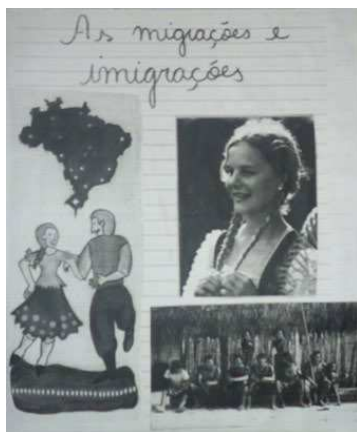 As migrações e
imigrações